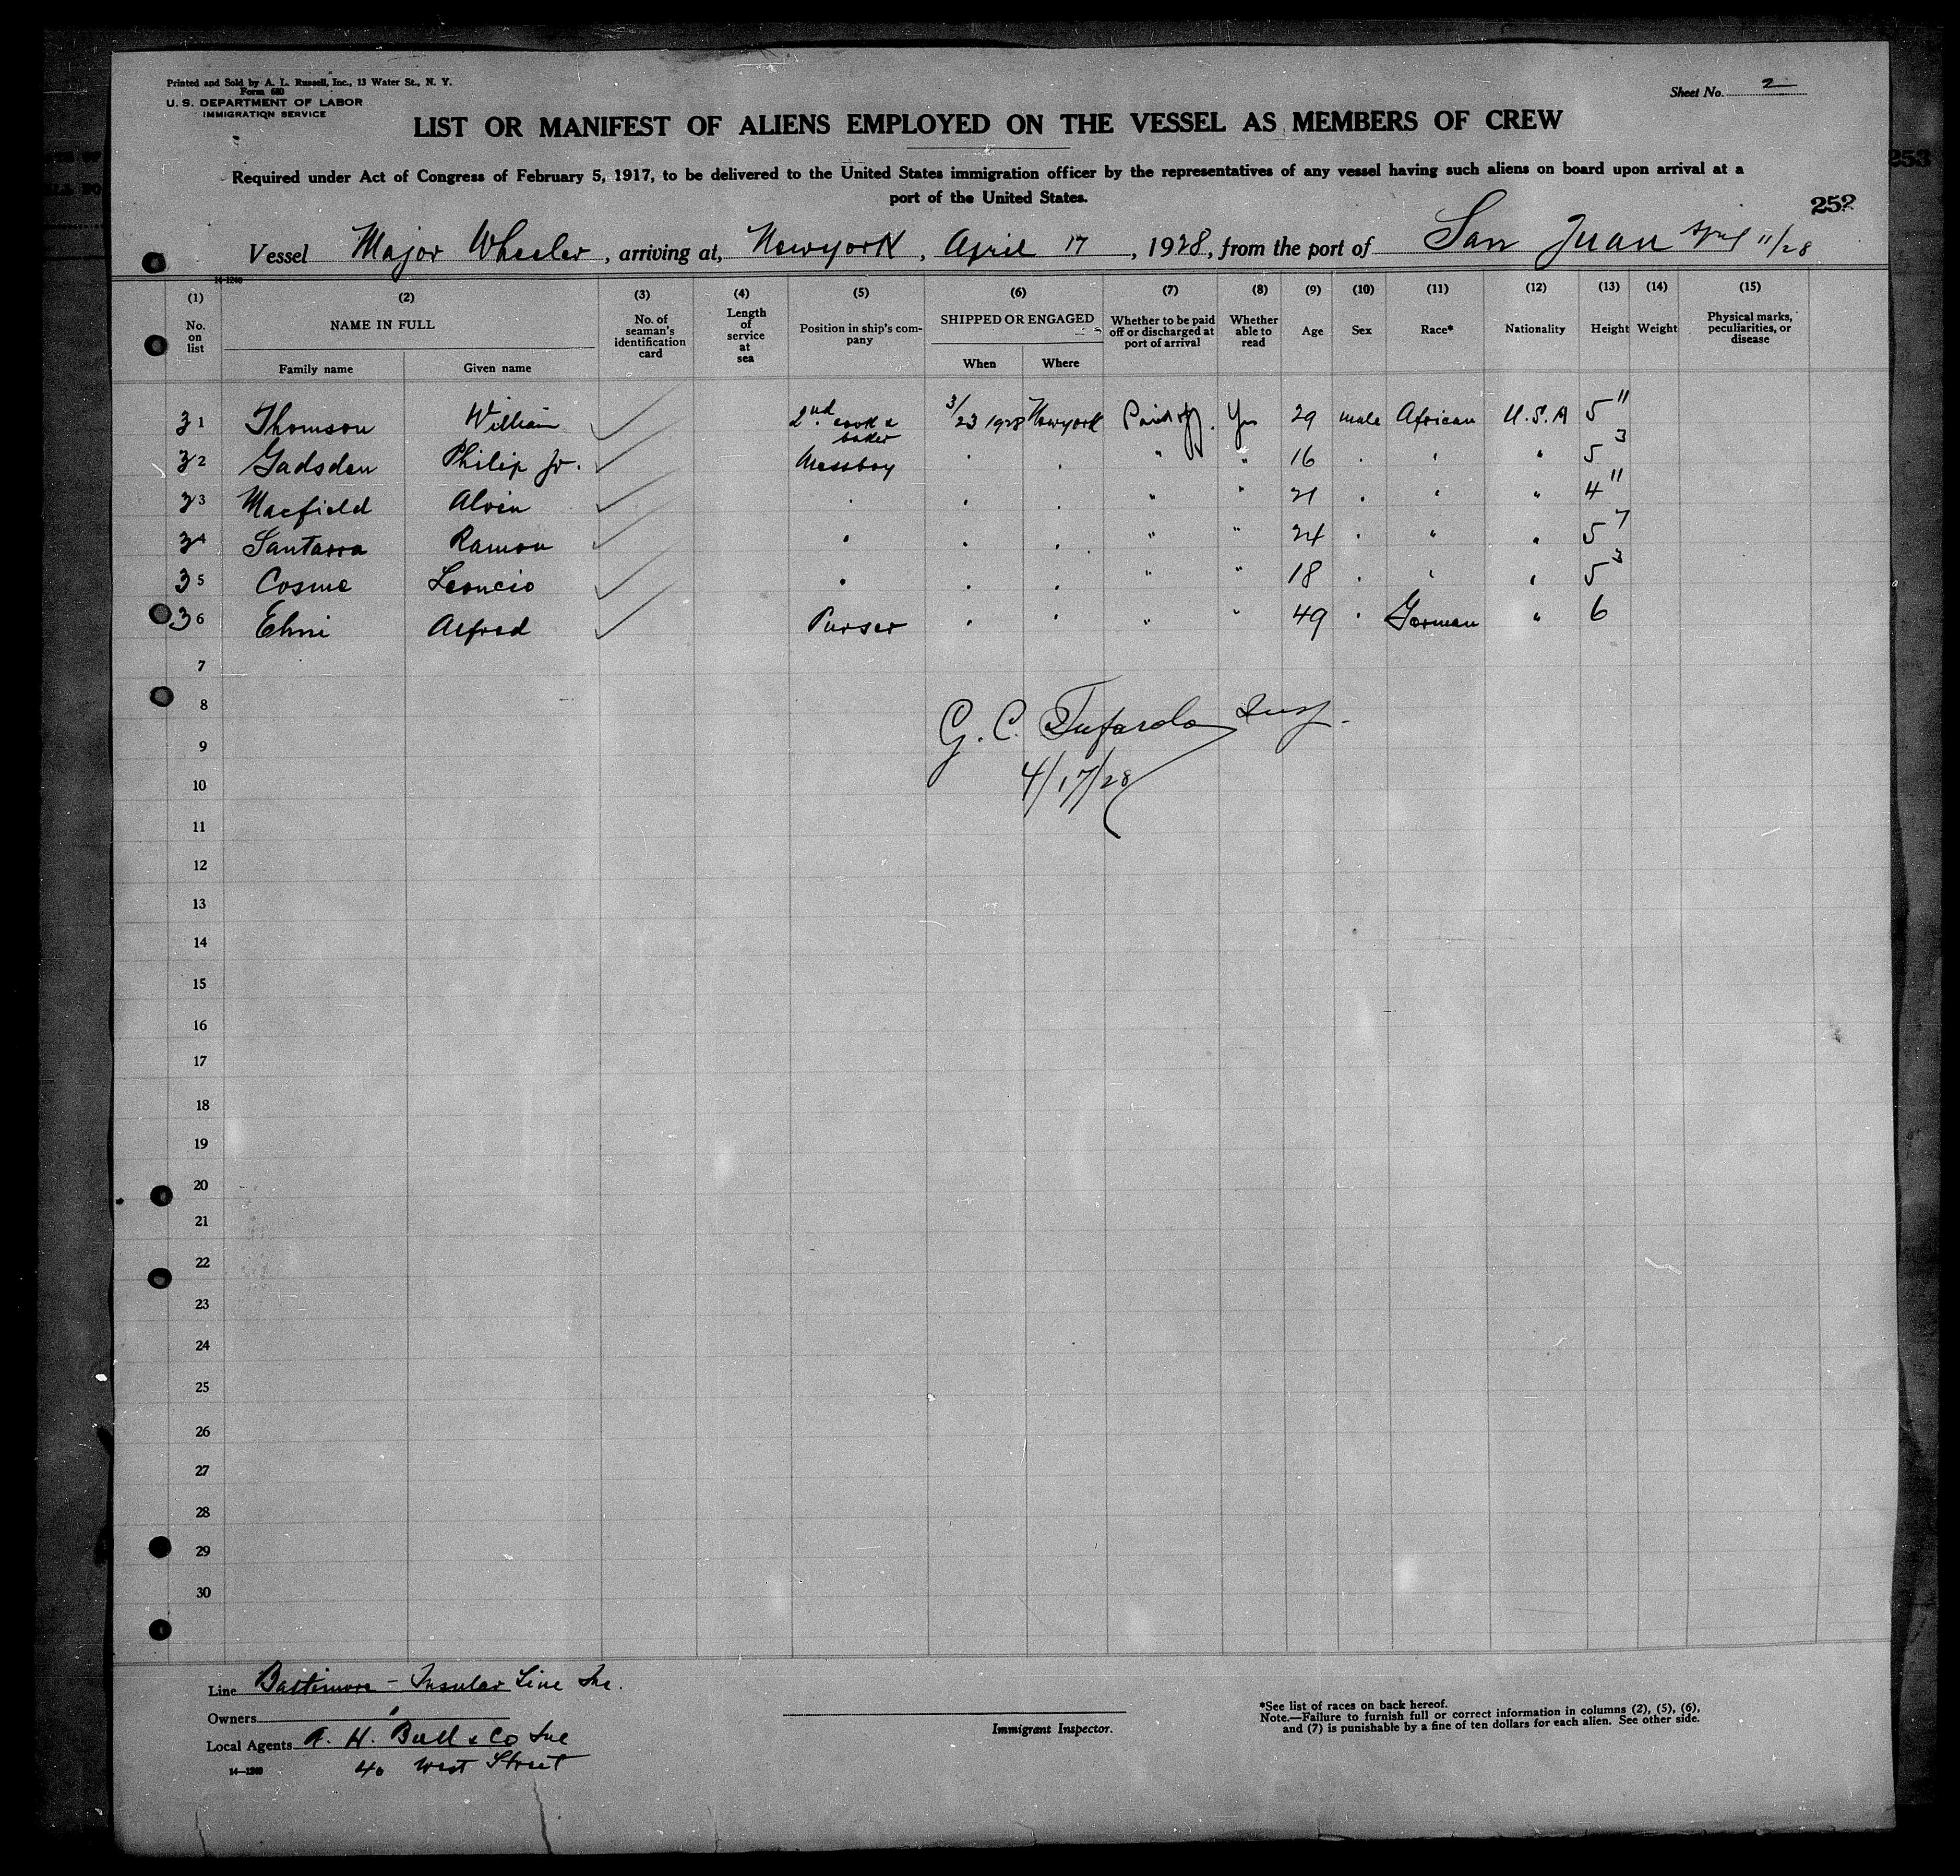 Printed and Sold by A. L. Russell, Inc., 13 Water St., N. Y.
Form 680
U. S. DEPARTMENT OF LABOR
IMMIGRATION SERVICE
Sheet No. 2
LIST OR MANIFEST OF ALIENS EMPLOYED ON THE VESSEL AS MEMBERS OF CREW
Required under Act of Congress of February 5, 1917, to be delivered to the United States immigration officer by the representatives of any vessel having such aliens on board upon arrival at a
port of the United States.
253
252
Vessel Major Wheeler, arriving at, Newyork, April 17, 1928, from the port of San Juan April 11/28
14-1240
(1) (2) (3) (4) (5) (6) (7) (8) (9) (10) (11) (12) (13) (14) (15)
No. on list NAME IN FULL No. of seaman's identification card Length of service at sea Position in ship's company SHIPPED OR ENGAGED Whether to be paid off or discharged at port of arrival Whether able to read Age Sex Race* Nationality Height Weight Physical marks, peculiarities, or disease
Family name Given name When Where
31 Thomson William 2nd. cook & baker 3/23 1928 Newyork Paid off. Yes 29 male African U.S.A 5 11
32 Gadsden Philip Jr. Messboy " " " " 16 " " " 5 3
33 Macfield Alvin " " " " " 21 " " " 4 11
34 Santana Ramon " " " " " 24 " " " 5 7
35 Cosme Leoncio " " " " " 18 " " " 5 3
36 Ehni Alfred Purser " " " " 49 " German " 6
7
8
G. C. Tufarolo Insp.
9
4/17/28
10
11
12
13
14
15
16
17
18
19
20
21
22
23
24
25
26
27
28
29
30
Line Baltimore - Insular Line Inc.
Owners "
Local Agents A. H. Bull & Co Inc
40 West Street
14—1240
Immigrant Inspector.
*See list of races on back hereof.
Note.—Failure to furnish full or correct information in columns (2), (5), (6),
and (7) is punishable by a fine of ten dollars for each alien. See other side.